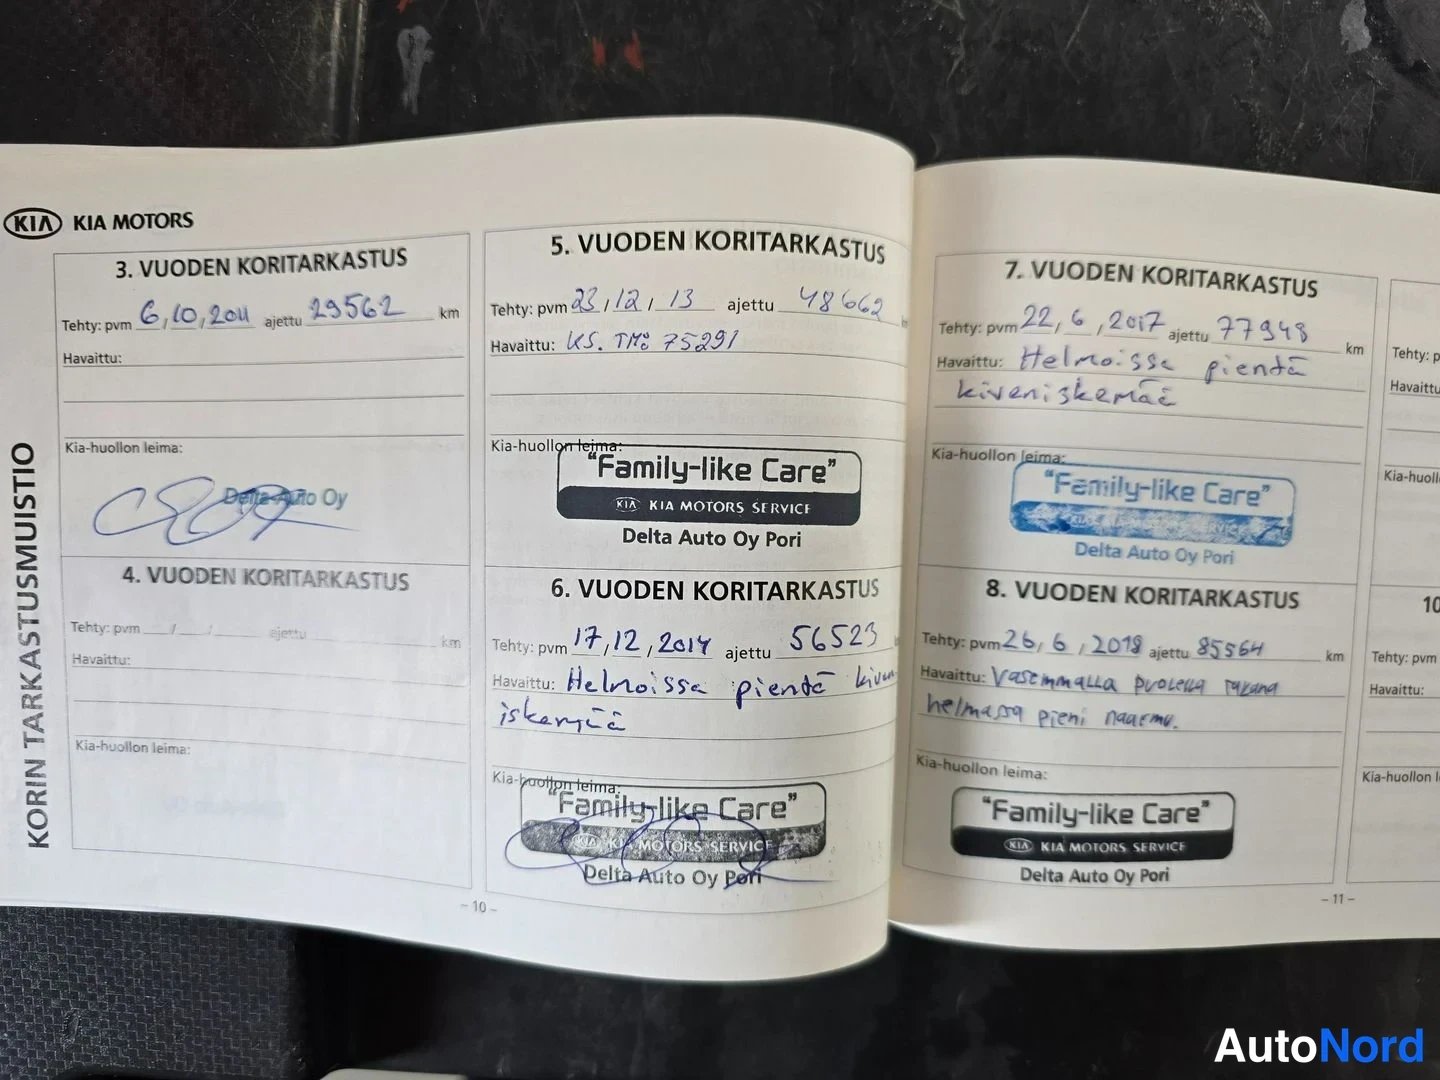 KIA KIA MOTORS
KORIN TARKASTUSMUISTIO
3. VUODEN KORITARKASTUS
Tehty: pvm 6,10,2011 ajettu 29562 km
Havaittu:
Kia-huollon leima:
Delta Auto Oy
4. VUODEN KORITARKASTUS
Tehty: pvm / / ajettu km
Havaittu:
Kia-huollon leima:
5. VUODEN KORITARKASTUS
Tehty: pvm 23/12/13 ajettu 48662
Havaittu: KS. TM: 75291
Kia-huollon leima:
"Family-like Care"
KIA KIA MOTORS SERVICE
Delta Auto Oy Pori
6. VUODEN KORITARKASTUS
Tehty: pvm 17,12,2014 ajettu 56523
Havaittu: Helmoissa pientä kiven
iskemää
Kia-huollon leima:
"Family-like Care"
KIA KIA MOTORS SERVICE
Delta Auto Oy Pori
- 10 -
7. VUODEN KORITARKASTUS
Tehty: pvm 22,6,2017 ajettu 77948 km
Havaittu: Helmoissa pientä
kiveniskemää
Kia-huollon leima:
"Family-like Care"
Delta Auto Oy Pori
8. VUODEN KORITARKASTUS
Tehty: pvm 26,6,2018 ajettu 85564 km
Havaittu: Vasemmalla puolella takana
helmassa pieni naarmu.
Kia-huollon leima:
"Family-like Care"
KIA KIA MOTORS SERVICE
Delta Auto Oy Pori
- 11 -
Tehty: p
Havaittu
Kia-huoll
10
Tehty: pvm
Havaittu:
Kia-huollon l
AutoNord